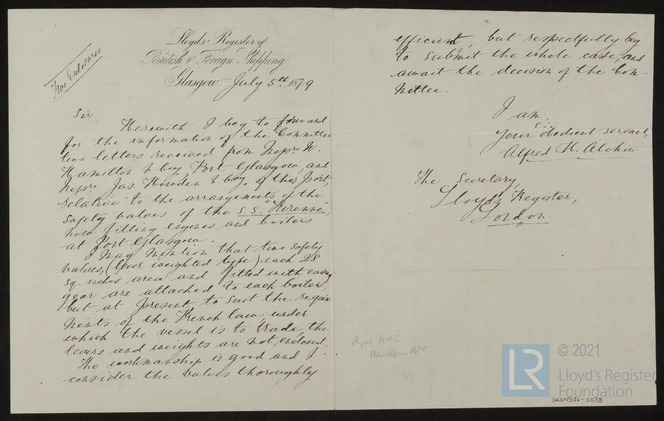 Two Enclosures
Lloyd's Register of
British & Foreign Shipping
Glasgow July 5th 1879
Sir,
Herewith I beg to forward
for the information of the Committee
two letters received from Messrs W.
Hamilton & Coy, Port Glasgow, and
Messrs Jas Howden & Coy, of this Port,
relative to the arrangements of the
safety valves of the S.S.
now fitting engines and boilers
at Port Glasgow.
I may mention that two safety
valves, (lever weighted type) each 28
sq. inches area and fitted with easing
gear are attached to each boiler
but at present, to suit the require
ments of the French law, under
which the vessel is to trade, the
levers and weights are not enclosed.
The workmanship is good and I
consider the valves thoroughly
efficient, but respectfully beg
to submit the whole case, and
await the decision of the Com-
mittee.
I am,
Sir,
Your obedient servant,
Alfred H.
The Secretary,
Lloyds Register,
London
LR
© 2021
Lloyd's Register
Foundation